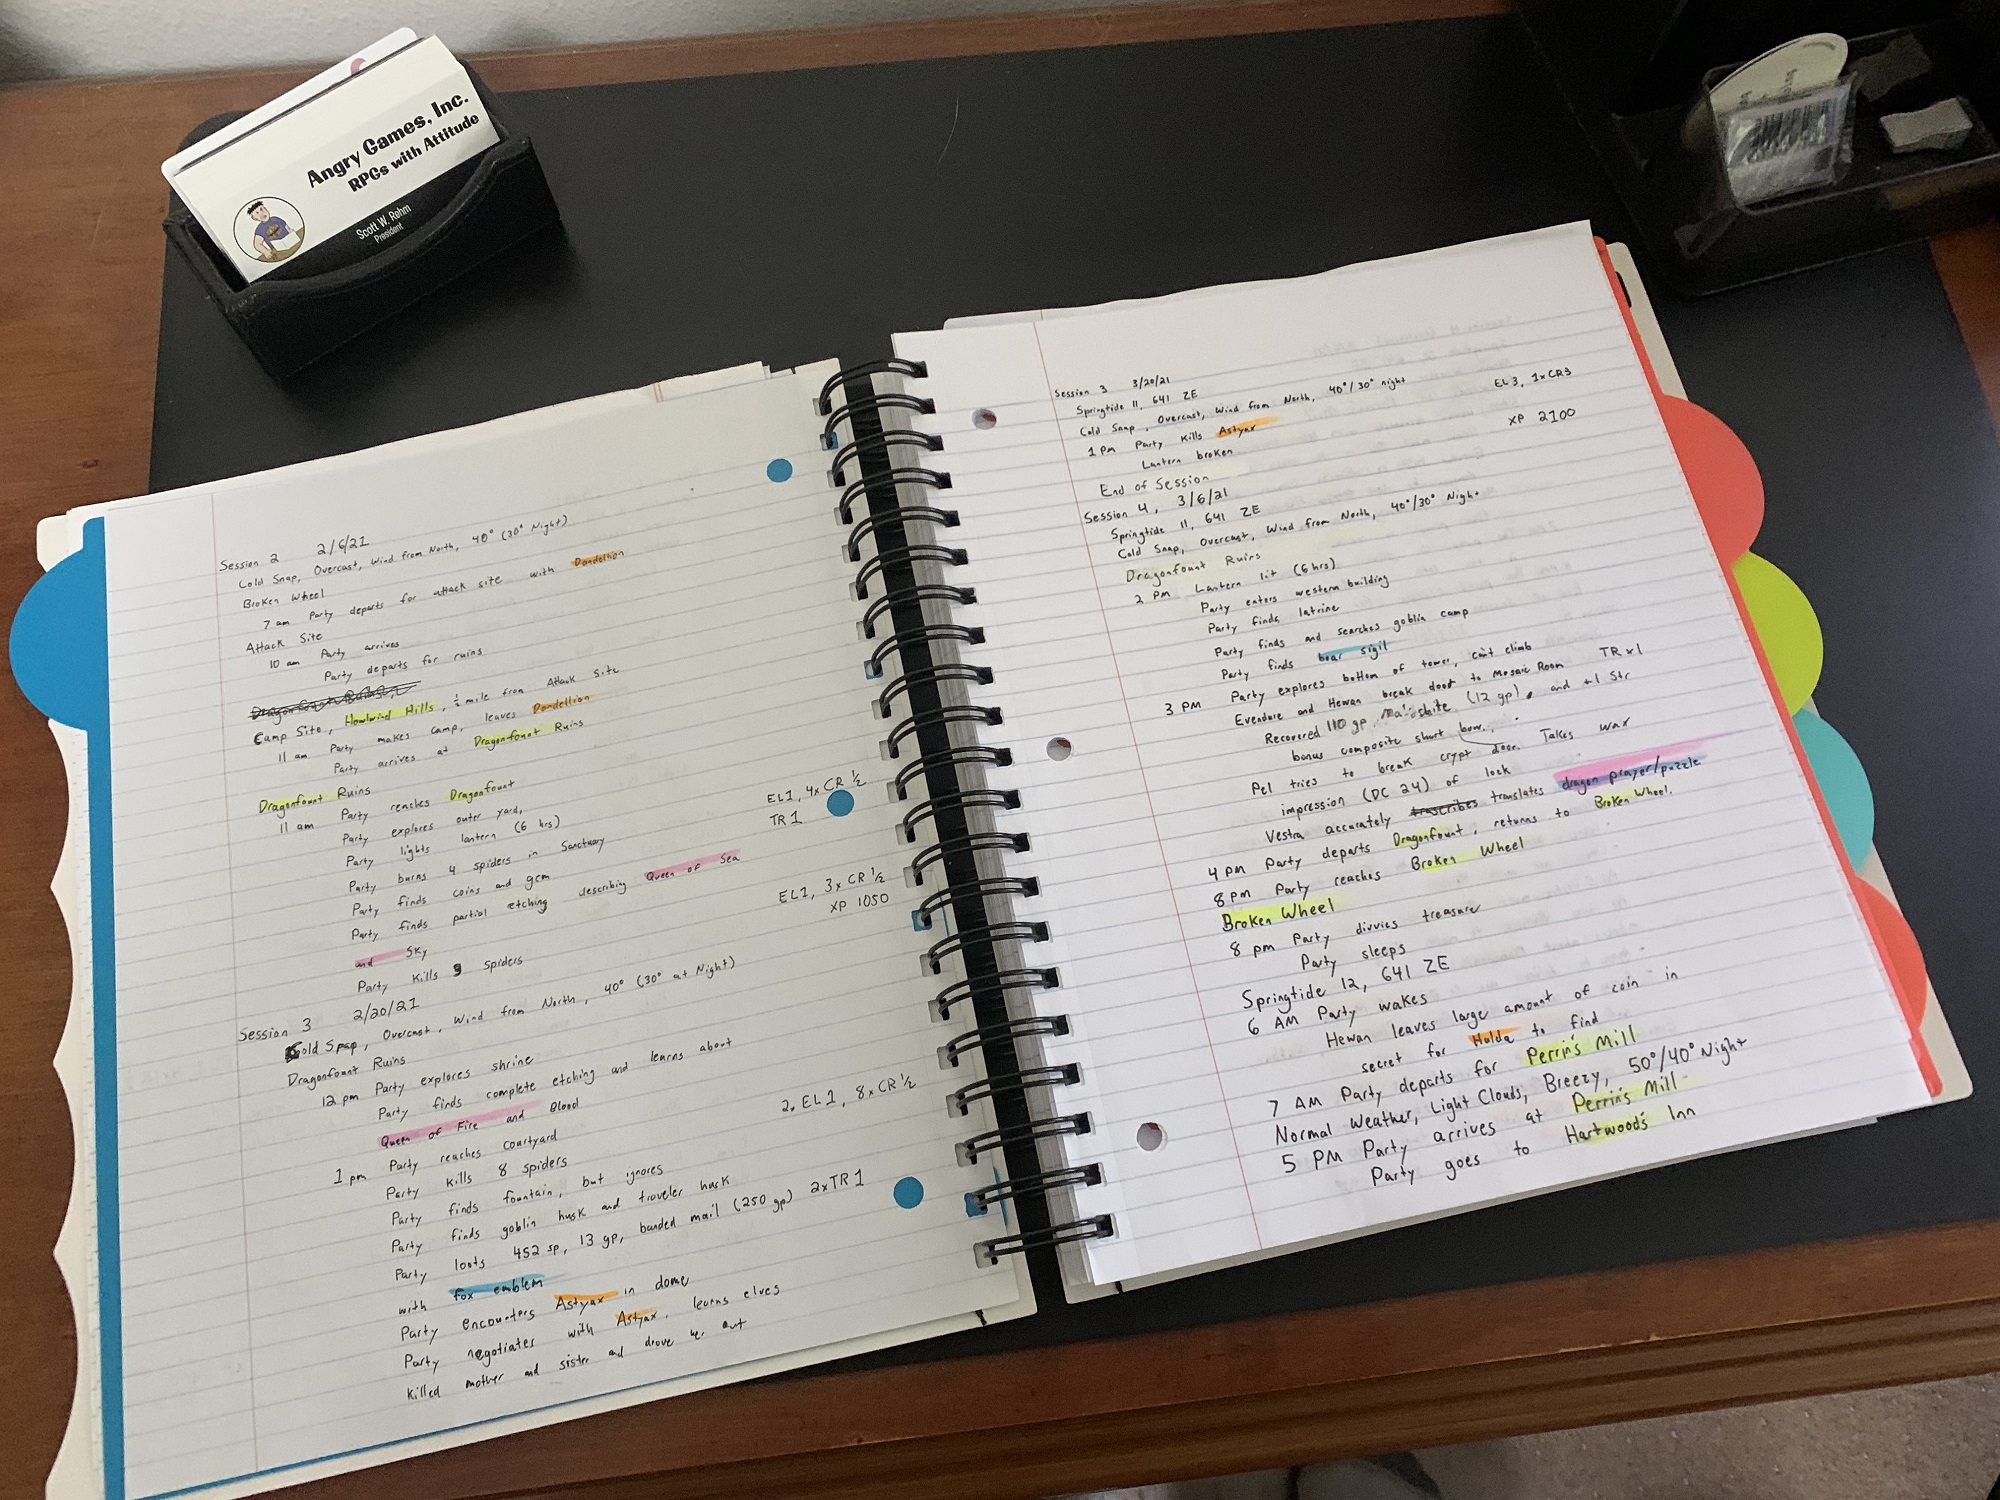 Angry Games, Inc.
RPGs with Attitude
Scott W. Rehm
President
Session 2 2/6/21
Cold Snap, Overcast, Wind from North, 40° (30° Night)
Broken Wheel
7 am Party departs for attack site with Dandellion
Attack Site
10 am Party arrives
Party departs for ruins
Camp Site, Howlwind Hills, ½ mile from Attack Site
11 am Party makes camp, leaves Dandellion
Party arrives at Dragonfount Ruins
Dragonfount Ruins
11 am Party reaches Dragonfount
Party explores outer yard,
Party lights lantern (6 hrs)
Party burns 4 spiders in Sanctuary EL1, 4x CR ½
Party finds coins and gem TR 1
Party finds partial etching describing Queen of Sea
and Sky
Party kills 3 spiders EL1, 3x CR ½
XP 1050
Session 3 2/20/21
Cold Snap, Overcast, Wind from North, 40° (30° at Night)
Dragonfount Ruins
12 pm Party explores shrine
Party finds complete etching and learns about
Queen of Fire and Blood
1 pm Party reaches courtyard
Party kills 8 spiders 2x EL1, 8x CR ½
Party finds fountain, but ignores
Party finds goblin husk and traveler husk
Party loots 452 sp, 13 gp, banded mail (250 gp) 2xTR 1
with fox emblem
Party encounters Astyax in dome
Party negotiates with Astyax, learns elves
killed mother and sister and drove her out
Session 3 3/20/21
Springtide 11, 641 ZE
Cold Snap, Overcast, Wind from North, 40°/30° night
1 Pm Party kills Astyax EL3, 1xCR3
Lantern broken XP 2100
End of Session
Session 4, 3/6/21
Springtide 11, 641 ZE
Cold Snap, Overcast, Wind from North, 40°/30° Night
Dragonfount Ruins
2 PM Lantern lit (6 hrs)
Party enters western building
Party finds latrine
Party finds and searches goblin camp
Party finds bear sigil
3 PM Party explores bottom of tower, can't climb
Evendure and Hewan break door to Mosaic Room TR x1
Recovered 110 gp, (12 gp), and +1 Str
bonus composite short bow.
Pel tries to break crypt door. Takes wax
impression (DC 24) of lock
Vestra accurately trascribes translates dragon prayer/puzzle
4 pm Party departs Dragonfount, returns to Broken Wheel.
8 pm Party reaches Broken Wheel
Broken Wheel
8 pm Party divvies treasure
Party sleeps
Springtide 12, 641 ZE
6 AM Party wakes
Hewan leaves large amount of coin in
secret for Hulda to find
7 AM Party departs for Perrin's Mill
Normal Weather, Light Clouds, Breezy, 50°/40° Night
5 PM Party arrives at Perrin's Mill
Party goes to Hartwoods Inn